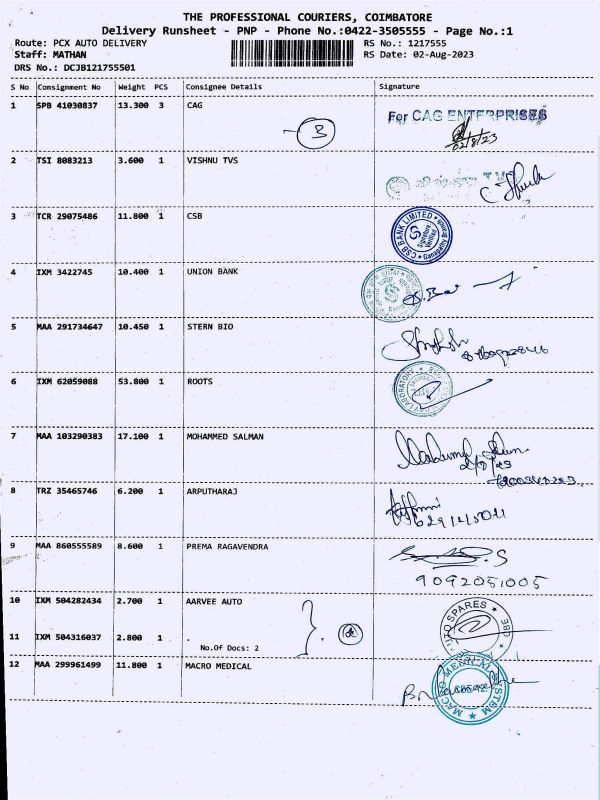 THE PROFESSIONAL COURIERS, COIMBATORE
Delivery Runsheet - PNP - Phone No.:0422-3505555 - Page No.:1
Route: PCX AUTO DELIVERY
RS No.: 1217555
Staff: MATHAN
RS Date: 02-Aug-2023
DRS No.: DCJB121755501
S No Consignment No Weight PCS Consignee Details Signature
1 SPB 41030837 13.300 3 CAG
For CAG ENTERPRISES
3
02/8/23
2 TSI 8083213 3.600 1 VISHNU TVS
3 TCR 29075486 11.800 1 CSB
CSB BANK LIMITED
Signature Verified
4 IXM 3422745 10.400 1 UNION BANK
5 MAA 291734647 10.450 1 STERN BIO
6 IXM 62059088 53.800 1 ROOTS
LABORATORY
7 MAA 103290383 17.100 1 MOHAMMED SALMAN
8 TRZ 35465746 6.200 1 ARPUTHARAJ
9 MAA 860555589 8.600 1 PREMA RAGAVENDRA
9092051005
10 IXM 504282434 2.700 1 AARVEE AUTO
AUTO SPARES
CBE
2
11 IXM 504316037 2.800 1 .
No.Of Docs: 2
12 MAA 299961499 11.800 1 MACRO MEDICAL
MACRO MEDICAL SYSTEM